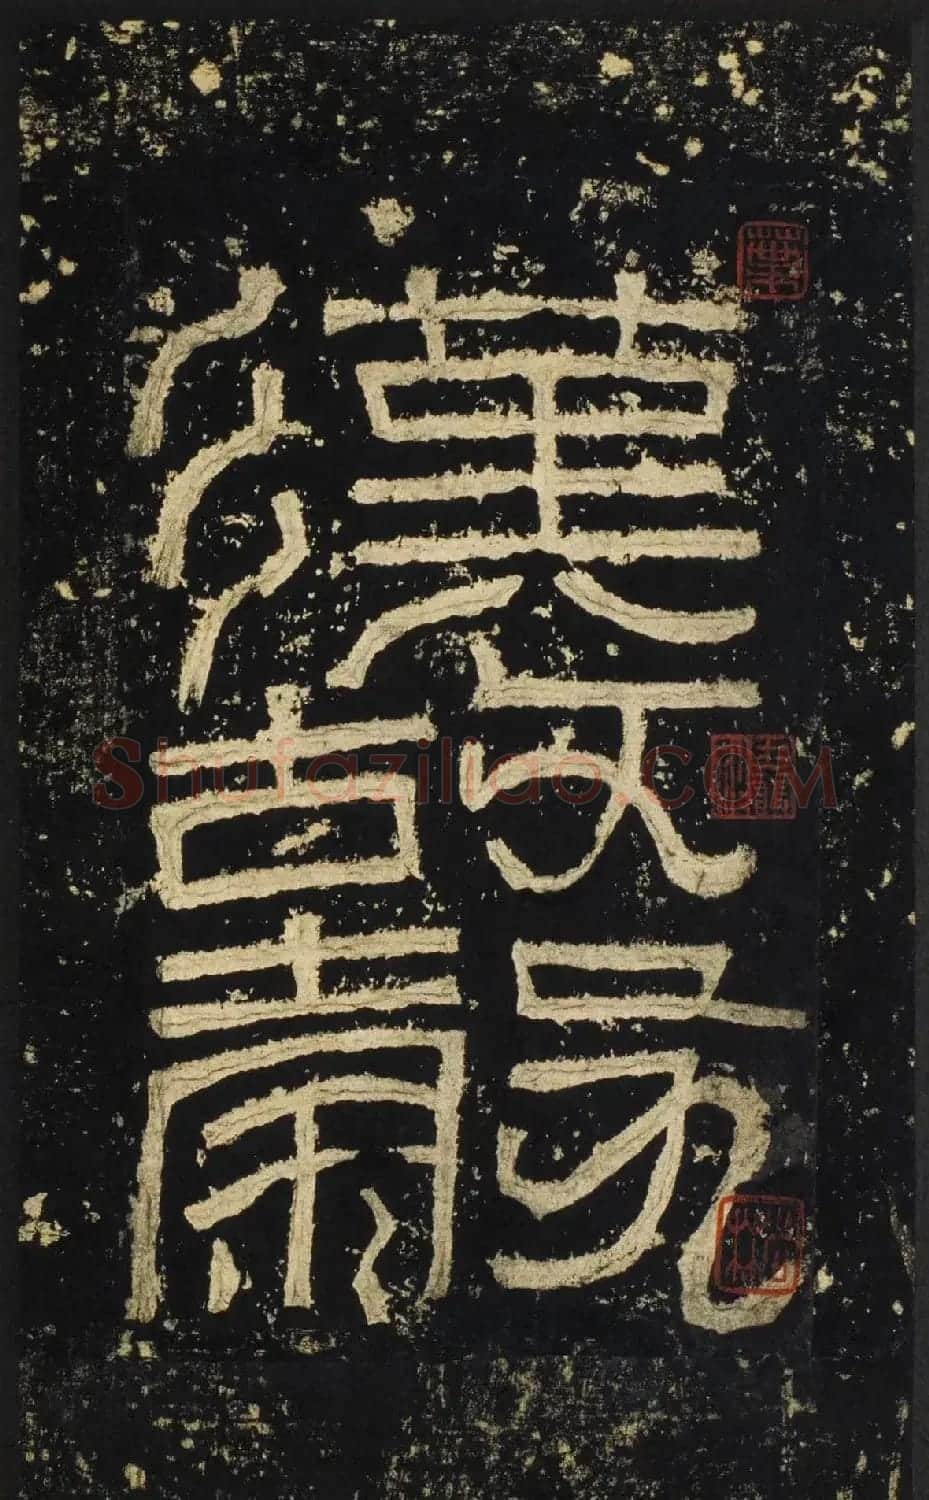 漢故穀
Shufaziliao.COM